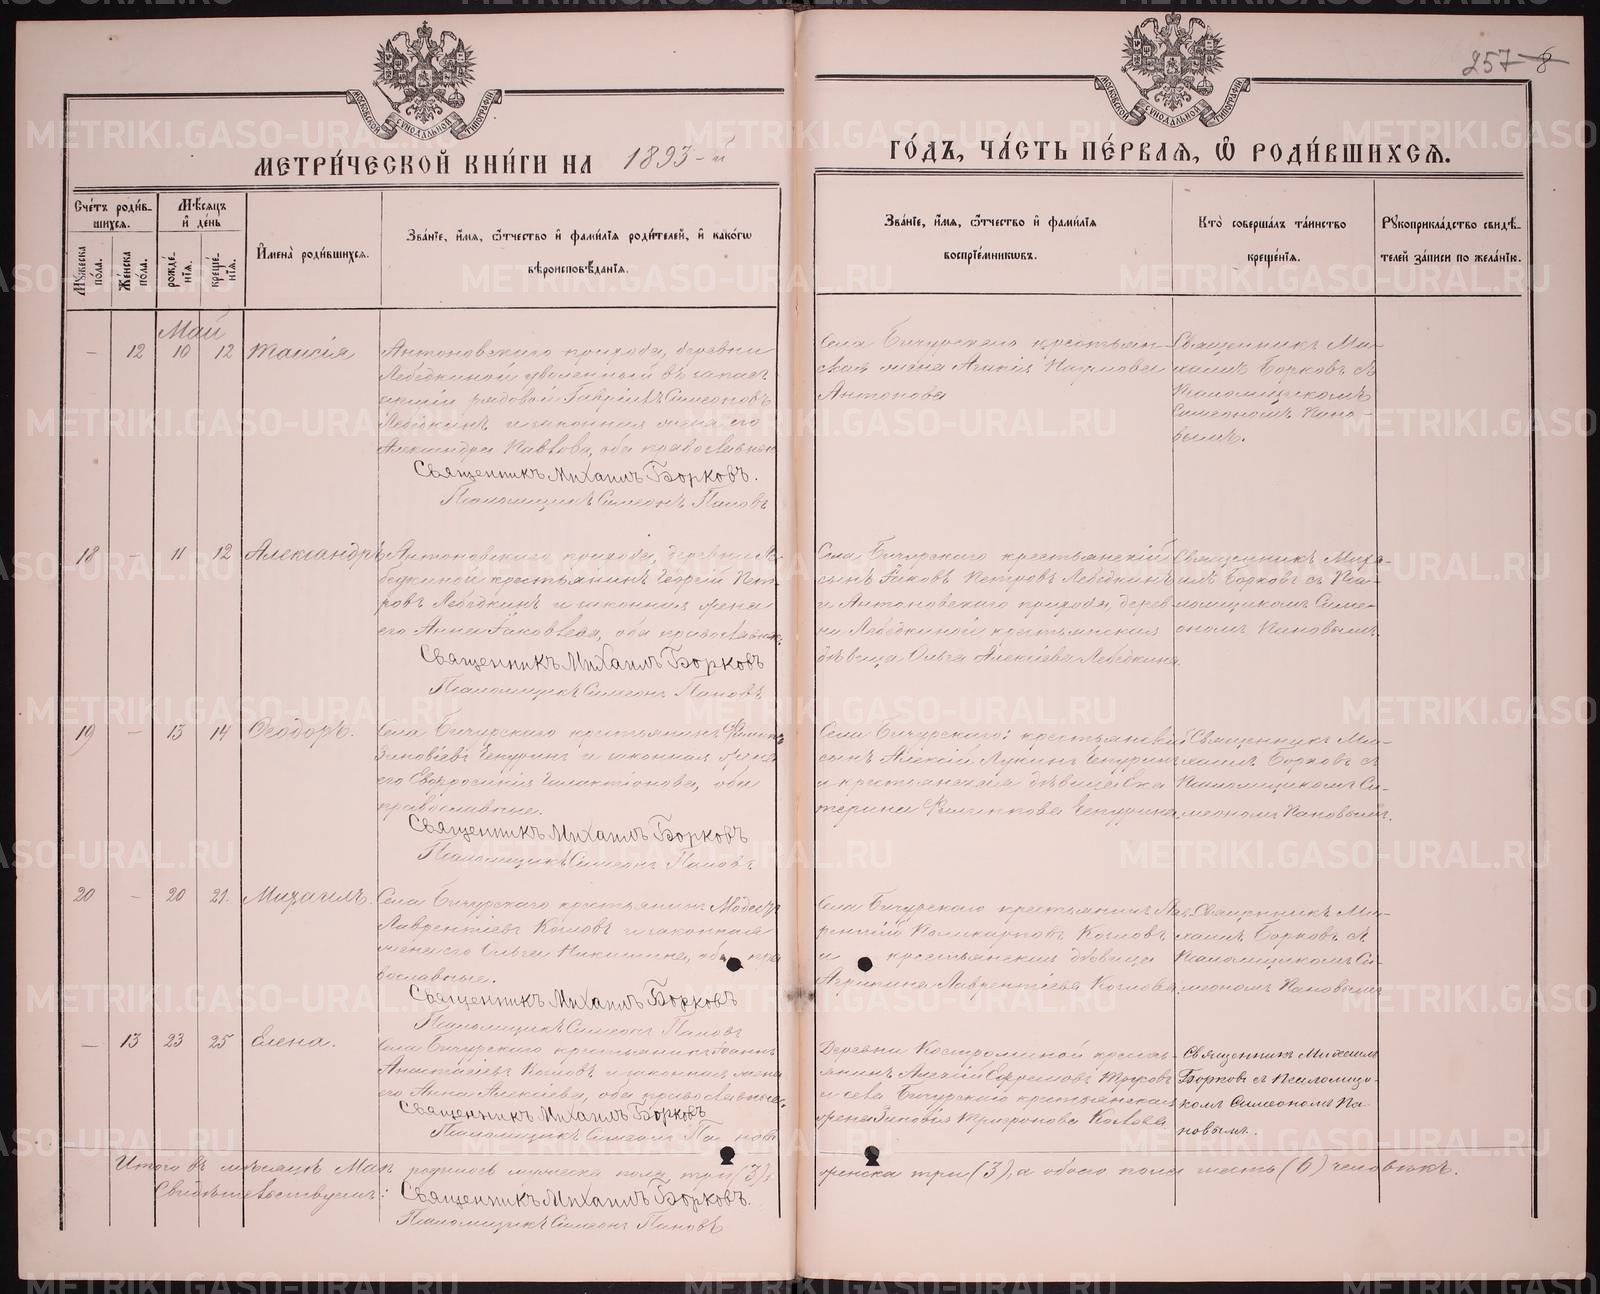 257 8
МЕТРИ́ЧЕСКОЙ КНИ́ГИ НА 1893-й
ГО́ДЪ, ЧА́СТЬ ПЕ́РВАЯ, Ѡ РОДИ́ВШИХСЯ.
Сче́тъ роди́в-
шихся.
Му́жеска по́ла.
Же́нска по́ла.
Мѣ́сяцъ
и҆ де́нь
рожде́-
нїя.
креще́-
нїя.
И҆мена̀ роди́вшихся.
Зва́нїе, и҆́мя, ѻ҆́тчество и҆ фами́лїя роди́телей, и҆ како́гѡ
вѣроисповѣ́данїя.
Зва́нїе, и҆́мя, ѻ҆́тчество и҆ фами́лїя
воспрїе́мниковъ.
Кто̀ соверша́лъ та́инство
креще́нїя.
Рꙋкоприкла́дство свидѣ́-
телей за́писи по жела́нїю.
Май
– 12 10 12 Таисія
Антоновскаго прихода, деревни
Лебедкиной уволенный въ запас
арміи рядовой Гавріилъ Симеоновъ
Лебедкинъ и законная жена его
Александра Павлова, оба православные
Священникъ Михаилъ Борковъ.
Псаломщикъ Симеонъ Пановъ
Села Бичурскаго крестьян-
ская жена Агапія Наумова
Антонова
Священникъ Ми-
хаилъ Борковъ съ
Псаломщикомъ
Симеономъ Пано-
вымъ.
18 – 11 12 Александръ
Антоновскаго прихода, деревни Ле-
бедкиной крестьянинъ Георгій Пет-
ровъ Лебедкинъ и законная жена
его Анна Іаковлева, оба православные.
Священникъ Михаилъ Борковъ
Псаломщикъ Симеонъ Пановъ
Села Бичурскаго крестьянскій
сынъ Іаковъ Петровъ Лебедкинъ
и Антоновскаго прихода, дерев-
ни Лебедкиной крестьянская
дѣвица Ольга Алексіева Лебедкина
Священникъ Миха-
илъ Борковъ съ Пса-
ломщикомъ Симе-
ономъ Пановымъ.
19 – 13 14 Ѳеодоръ.
Села Бичурскаго крестьянинъ Филиппъ
Зиновіевъ Чепуринъ и законная жена
его Евдросинія Галактіонова, оба
православные.
Священникъ Михаилъ Борковъ
Псаломщикъ Симеонъ Пановъ
Села Бичурскаго: крестьянскій
сынъ Алексій Лукинъ Чепуринъ
и крестьянская дѣвица Ека-
терина Филиппова Чепурина
Священникъ Ми-
хаилъ Борковъ съ
Псаломщикомъ Си-
меономъ Пановымъ.
20 – 20 21. Михаилъ.
Села Бичурскаго крестьянинъ Модестъ
Лаврентіевъ Козловъ и законная
жена его Ольга Никитина, оба пра
вославные.
Священникъ Михаилъ Борковъ
Псаломщикъ Симеонъ Пановъ
Села Бичурскаго крестьянинъ Лав-
рентій Поликарповъ Козловъ
и крестьянская дѣвица
Агрипина Лаврентіева Козлова
Священникъ Ми-
хаилъ Борковъ съ
Псаломщикомъ Си-
меономъ Пановымъ
– 13 23 25 Елена.
Села Бичурскаго крестьянинъ Іоаннъ
Анастасіевъ Козловъ и законная жена
его Анна Алексіева, оба православные.
Священникъ Михаилъ Борковъ
Псаломщикъ Симеонъ Пановъ
Деревни Костроминой кресть-
янинъ Алексій Ефремовъ
и села Бичурскаго крестьянская
жена Зиновія Трифонова Козлова
Священникъ Михаилъ
Борковъ съ Псаломщи-
комъ Симеономъ Па-
новымъ.
Итого въ мѣсяцѣ Маѣ родилось мужеска пола три (3),
женска три (3), а обоего пола шесть (6) человѣкъ.
Свидѣтельствуемъ: Священникъ Михаилъ Борковъ.
Псаломщикъ Симеонъ Пановъ
METRIKI.GASO-URAL.RU